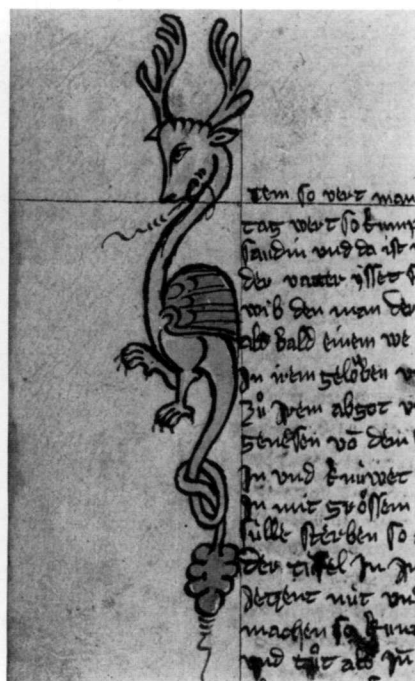 tem so vert man
tag wert so kump
sandin vnd da ist
der vatter ysset
wib den man der
als bald einem we
In irem gelöben
Zů Irem abgot
genesen vō dem
In vnd knuwet
In mit grössem
sülle sterben so
der In
Jetzent nüt
machen so
vnd tůt als